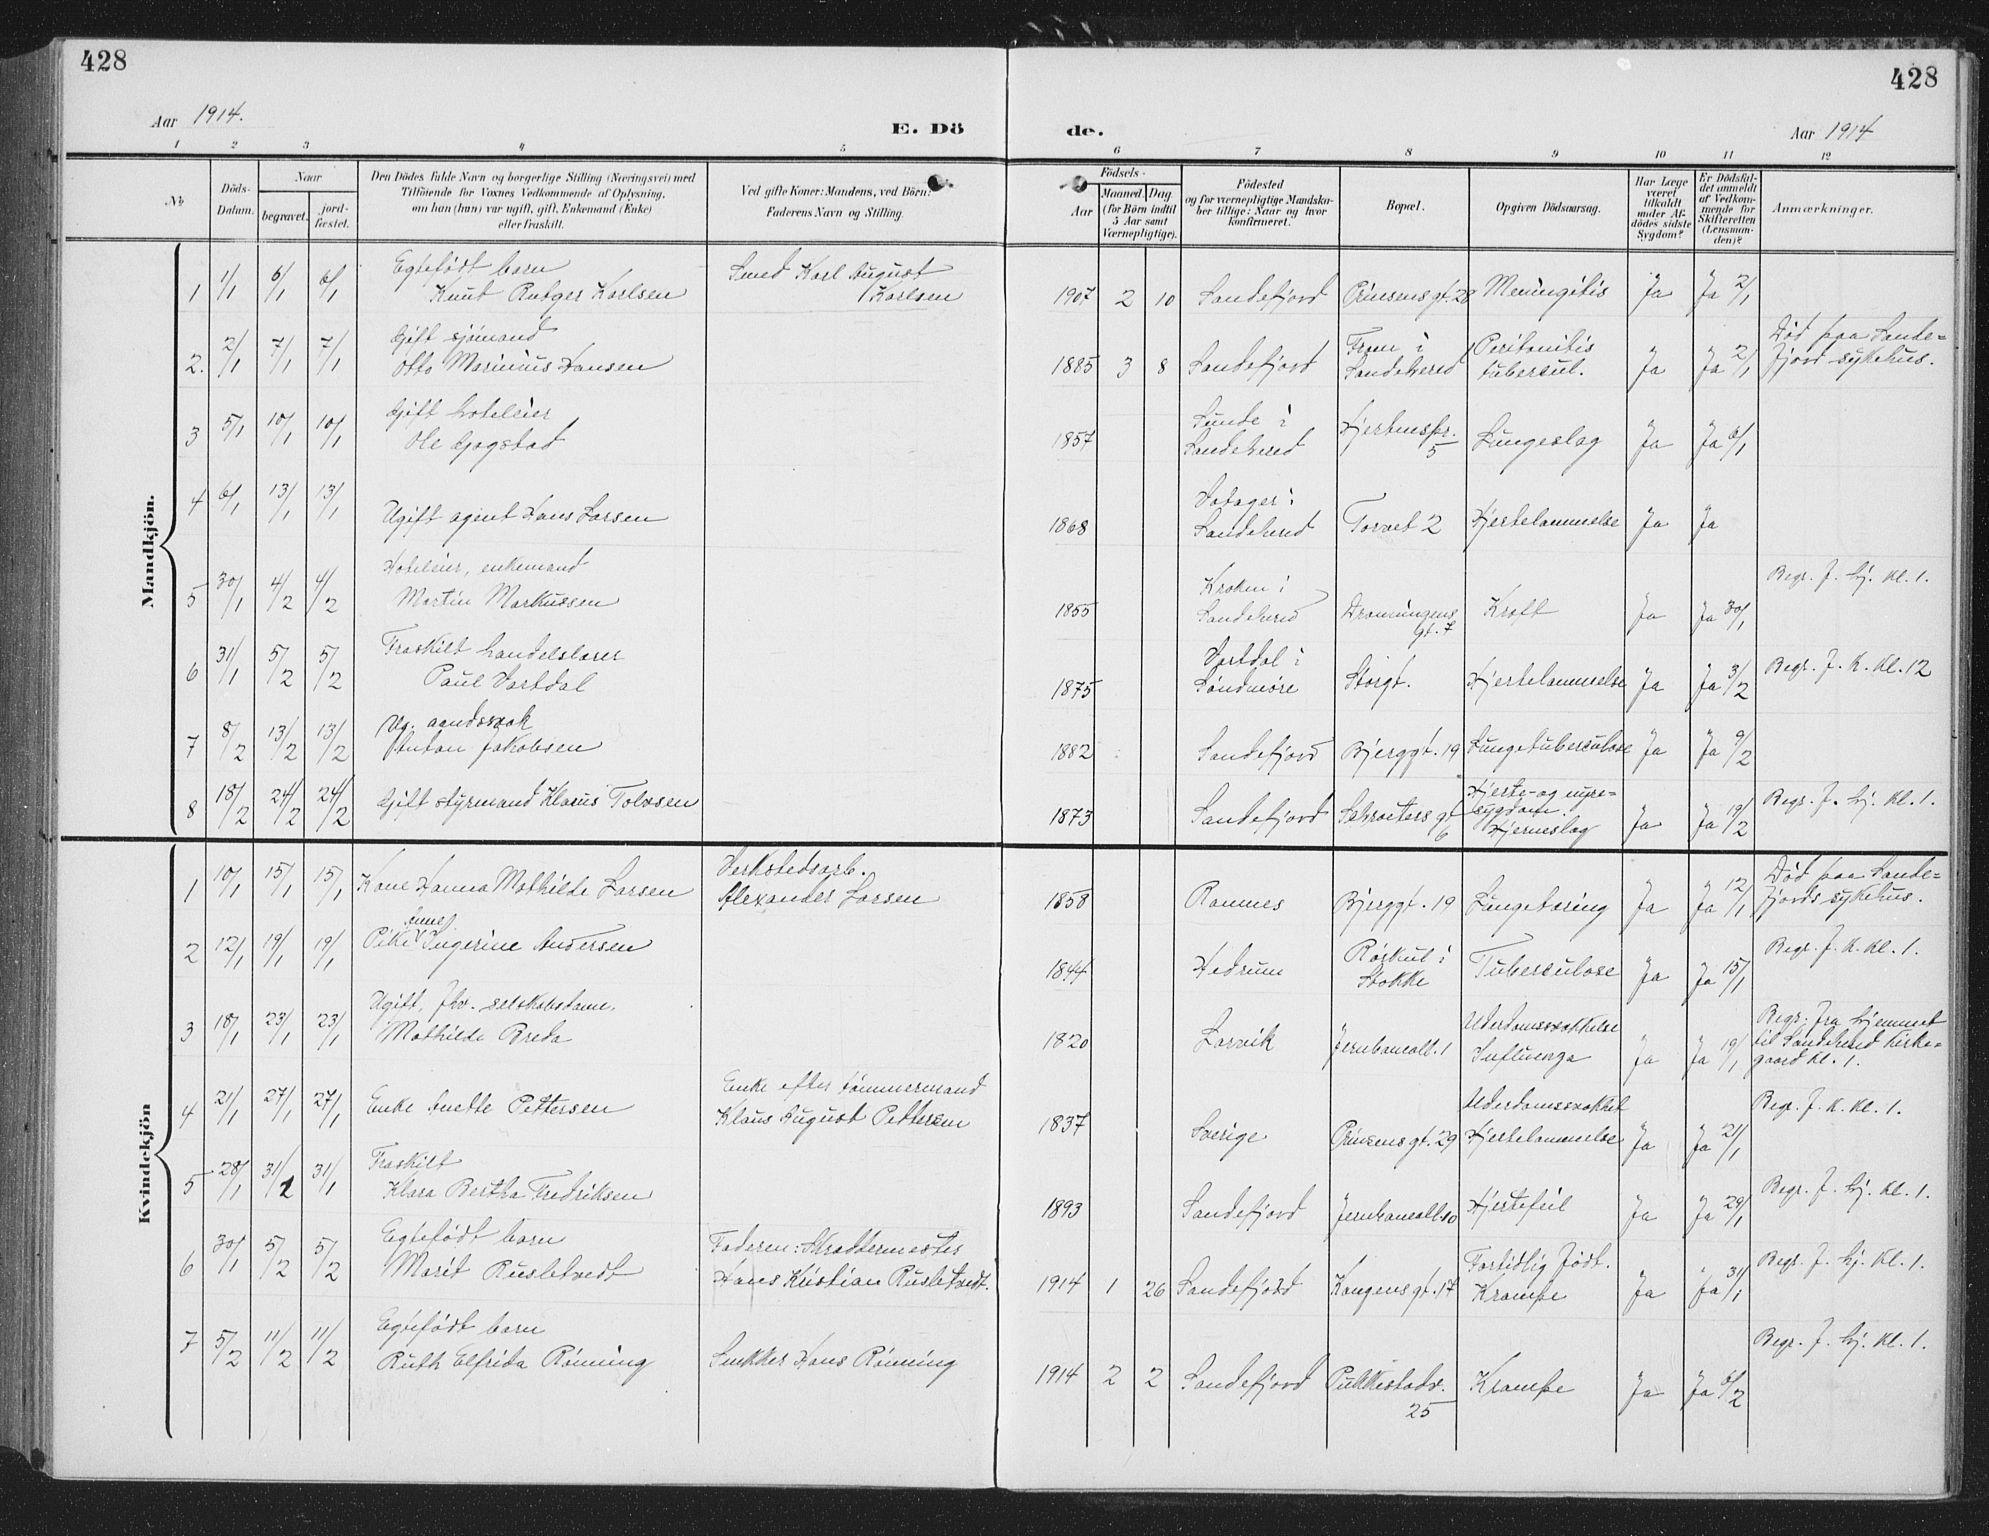 428
428
Aar 1914.
E. Dö
de.
Aar 1914
1 2 3 4 5 6 7 8 9 10 11 12
No
Döds-Datum.
Naar
begravet.
jord-fæstet.
Den Dödes fulde Navn og borgerlige Stilling (Næringsvei) med
Tilföiende for Voxnes Vedkommende af Oplysning,
om han (hun) var ugift, gift, Enkemand (Enke)
eller fraskilt.
Ved gifte Koner: Mandens, ved Börn:
Faderens Navn og Stilling.
Födsels-
Aar
Maaned. Dag
(for Börn indtil
5 Aar samt
Værnepligtige).
Födested
og for værnepligtige Mandska-
ber tillige: Naar og hvor
konfirmeret.
Bopæl.
Opgiven Dödsaarsag.
Har Læge
været
tilkaldt
under Af-
dödes sidste
Sygdom?
Er Dödsfal-
det anmeldt
af Vedkom-
mende for
Skifteretten
(Lensman-
den)?
Anmærkninger.
Mandkjön.
1 1/1 6/1 6/1 Egtefödt barn
Knut Rutger Karlsen
Smed Karl August
Karlsen
1907 2 10 Sandefjord Prinsensgt. 28 Meningitis Ja Ja 2/1
2. 2/1 7/1 7/1 Gift sjömand
Otto Marinius Hansen
1885 3 8 Sandefjord Fram i
Sandehered
Peritonitis
tubercul.
Ja Ja 2/1
Död paa Sande=
fjord sykehus.
3 5/1 10/1 10/1 Gift hoteleier
Ole Gogstad
1857 Sunde i
Sandeherad
Hjertnespr.
5
Lungeslag Ja Ja 6/1
4 6/1 13/1 13/1 Ugift agent Hans Larsen
1868
Sandeherad
Torvet 2 Hjertelammelse Ja Ja
5 30/1 4/2 4/2 Hoteleier, enkemand
Martin Markussen
1855 Kroken i
Sandeherad
Dronningens
gt. 7
Kræft Ja Ja 30/1
Begr. f. hj. kl. 1.
6 31/1 5/2 5/2 Fraskilt handelslærer
Paul Vartdal
1875 Vartdal i
Søndmøre
Storgt. Hjertelammelse Ja Ja 3/2
Begr. f. K. kl. 12
7 8/2 13/2 13/2 Ug. aandssvak
Anton Jakobsen
1882 Sandefjord Bjerggt. 19 Lungetuberculose Ja Ja 9/2
8 18/2 24/2 24/2 Gift styrmand Klaus Tolvsen
1873 Sandefjord Schrøtersgt
6
Hjerte- og nyre=
sygdom.
Hjerneslag
Ja Ja 19/2
Begr. f. hj. kl. 1.
Kvindekjön
1 10/1 15/1 15/1 Kone Hanna Mathilde Larsen
Verkstedsarb.
Alexander Larsen
1858 Ramnes Bjerggt. 19 Lungetæring Ja Ja 12/1
Död paa Sande=
fjords sykehus.
2 12/1 19/1 19/1 Pike Ingerine Andersen
1844 Hedrum
Stokke
Tuberculose Ja Ja 15/1
Begr. f. K. kl. 1.
3 18/1 23/1 23/1 Ugift, fhv. selskabsdame.
Mathilde Breda
1820 Larvik Jernbanealle. 1
Alderdomssvækkelse
Influenza
Ja Ja 19/1
Begr. fra hjemmet
til Sandeherad kirke=
gaard kl. 1.
4 21/1 27/1 27/1 Enke Anette Pettersen
Enke efter tømmermand
Klaus August Pettersen
1837 Sverige Prinsensgt. 29
Alderdomssvækket
Hjertelammelse
Ja Ja 21/1
Begr. f. K. kl. 1.
5 28/1 31/1 31/1 Fraskilt
Klara Bertha Fredriksen
1893 Sandefjord Jernbaneall. 10 Hjertefeil Ja Ja 29/1
Begr. f. hj. kl. 1.
6 30/1 5/2 5/2 Egtefödt barn
Marit Rusletvedt
Faderen: Skræddermester
Hans Kristian Rusletvedt.
1914 1 26 Sandefjord Kongensgt. 17
Fortidlig født.
Krampe
Ja Ja 31/1
Begr. f. hj. kl. 1.
7 5/2 11/2 11/2 Egtefödt barn
Ruth Elfrida Rönning
Snekker Hans Rönning
1914 2 2 Sandefjord Pukkestadv.
25
Krampe Ja Ja 6/2
Begr. f. hj. kl. 1.